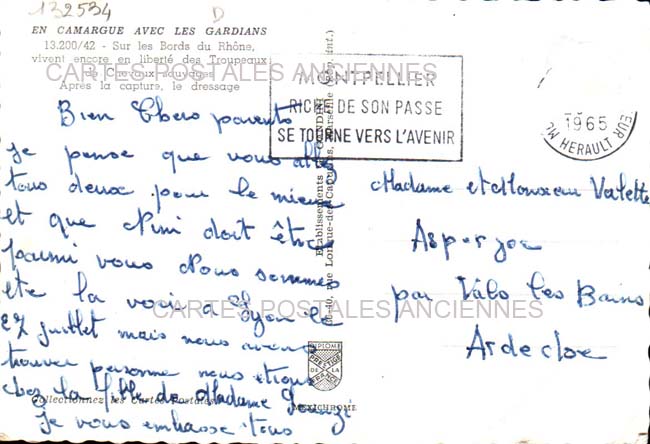 132534 D
EN CAMARGUE AVEC LES GARDIANS
13.200/42 - Sur les Bords du Rhône,
vivent encore en liberté des Troupeaux
de Chevaux sauvages
Après la capture, le dressage
CARTES POSTALES ANCIENNES
MONTPELLIER
RICHE DE SON PASSE
SE TOURNE VERS L'AVENIR
1965
HERAULT
Bien Chers parents
je pense que vous allez
tous deux pour le mieux
et que Nini doit être
parmi vous Nous sommes
ete la voir a Lyon le
27 juillet mais nous avons
trouver personne nous étions
chez la fille de Madame
Je vous embrasse tous
Madame et Monsieur Valette
Asperjoc
par Vals les Bains
Ardeche
CARTES POSTALES ANCIENNES
Etablissements
DIPLOME
PRESTIGE
DE LA
FRANCE
MEXICHROME
Collectionnez les Cartes Postales